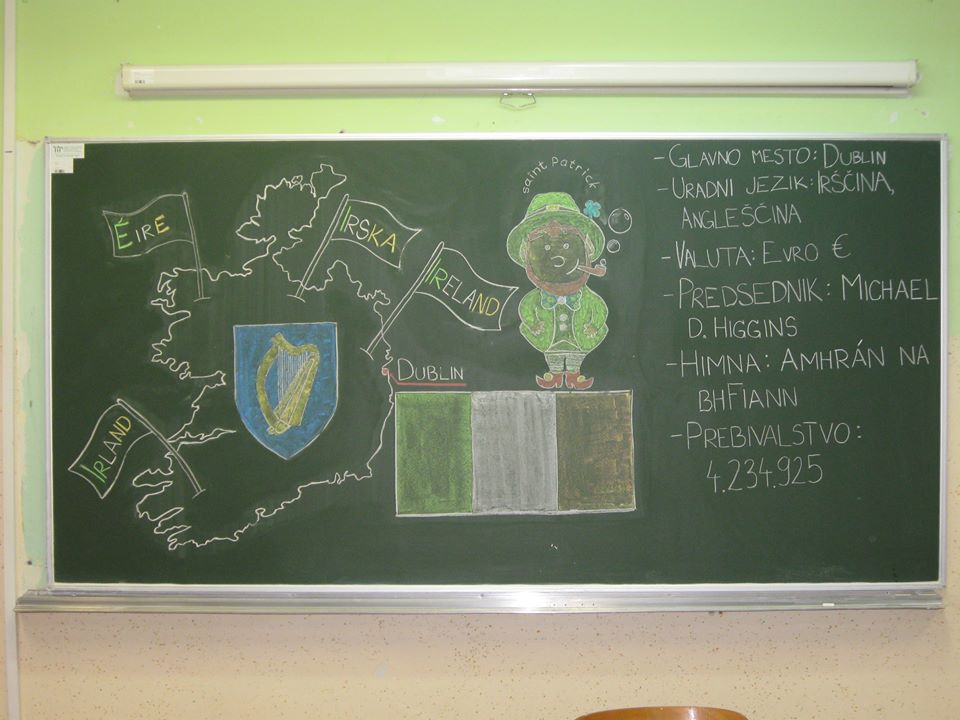 ÉIRE
IRSKA
IRELAND
IRLAND
DUBLIN
saint Patrick
- GLAVNO MESTO: DUBLIN
- URADNI JEZIK: IRŠČINA,
ANGLEŠČINA
- VALUTA: EVRO €
- PREDSEDNIK: MICHAEL
D. HIGGINS
- HIMNA: AMHRÁN NA
BHFIANN
- PREBIVALSTVO:
4.234.925